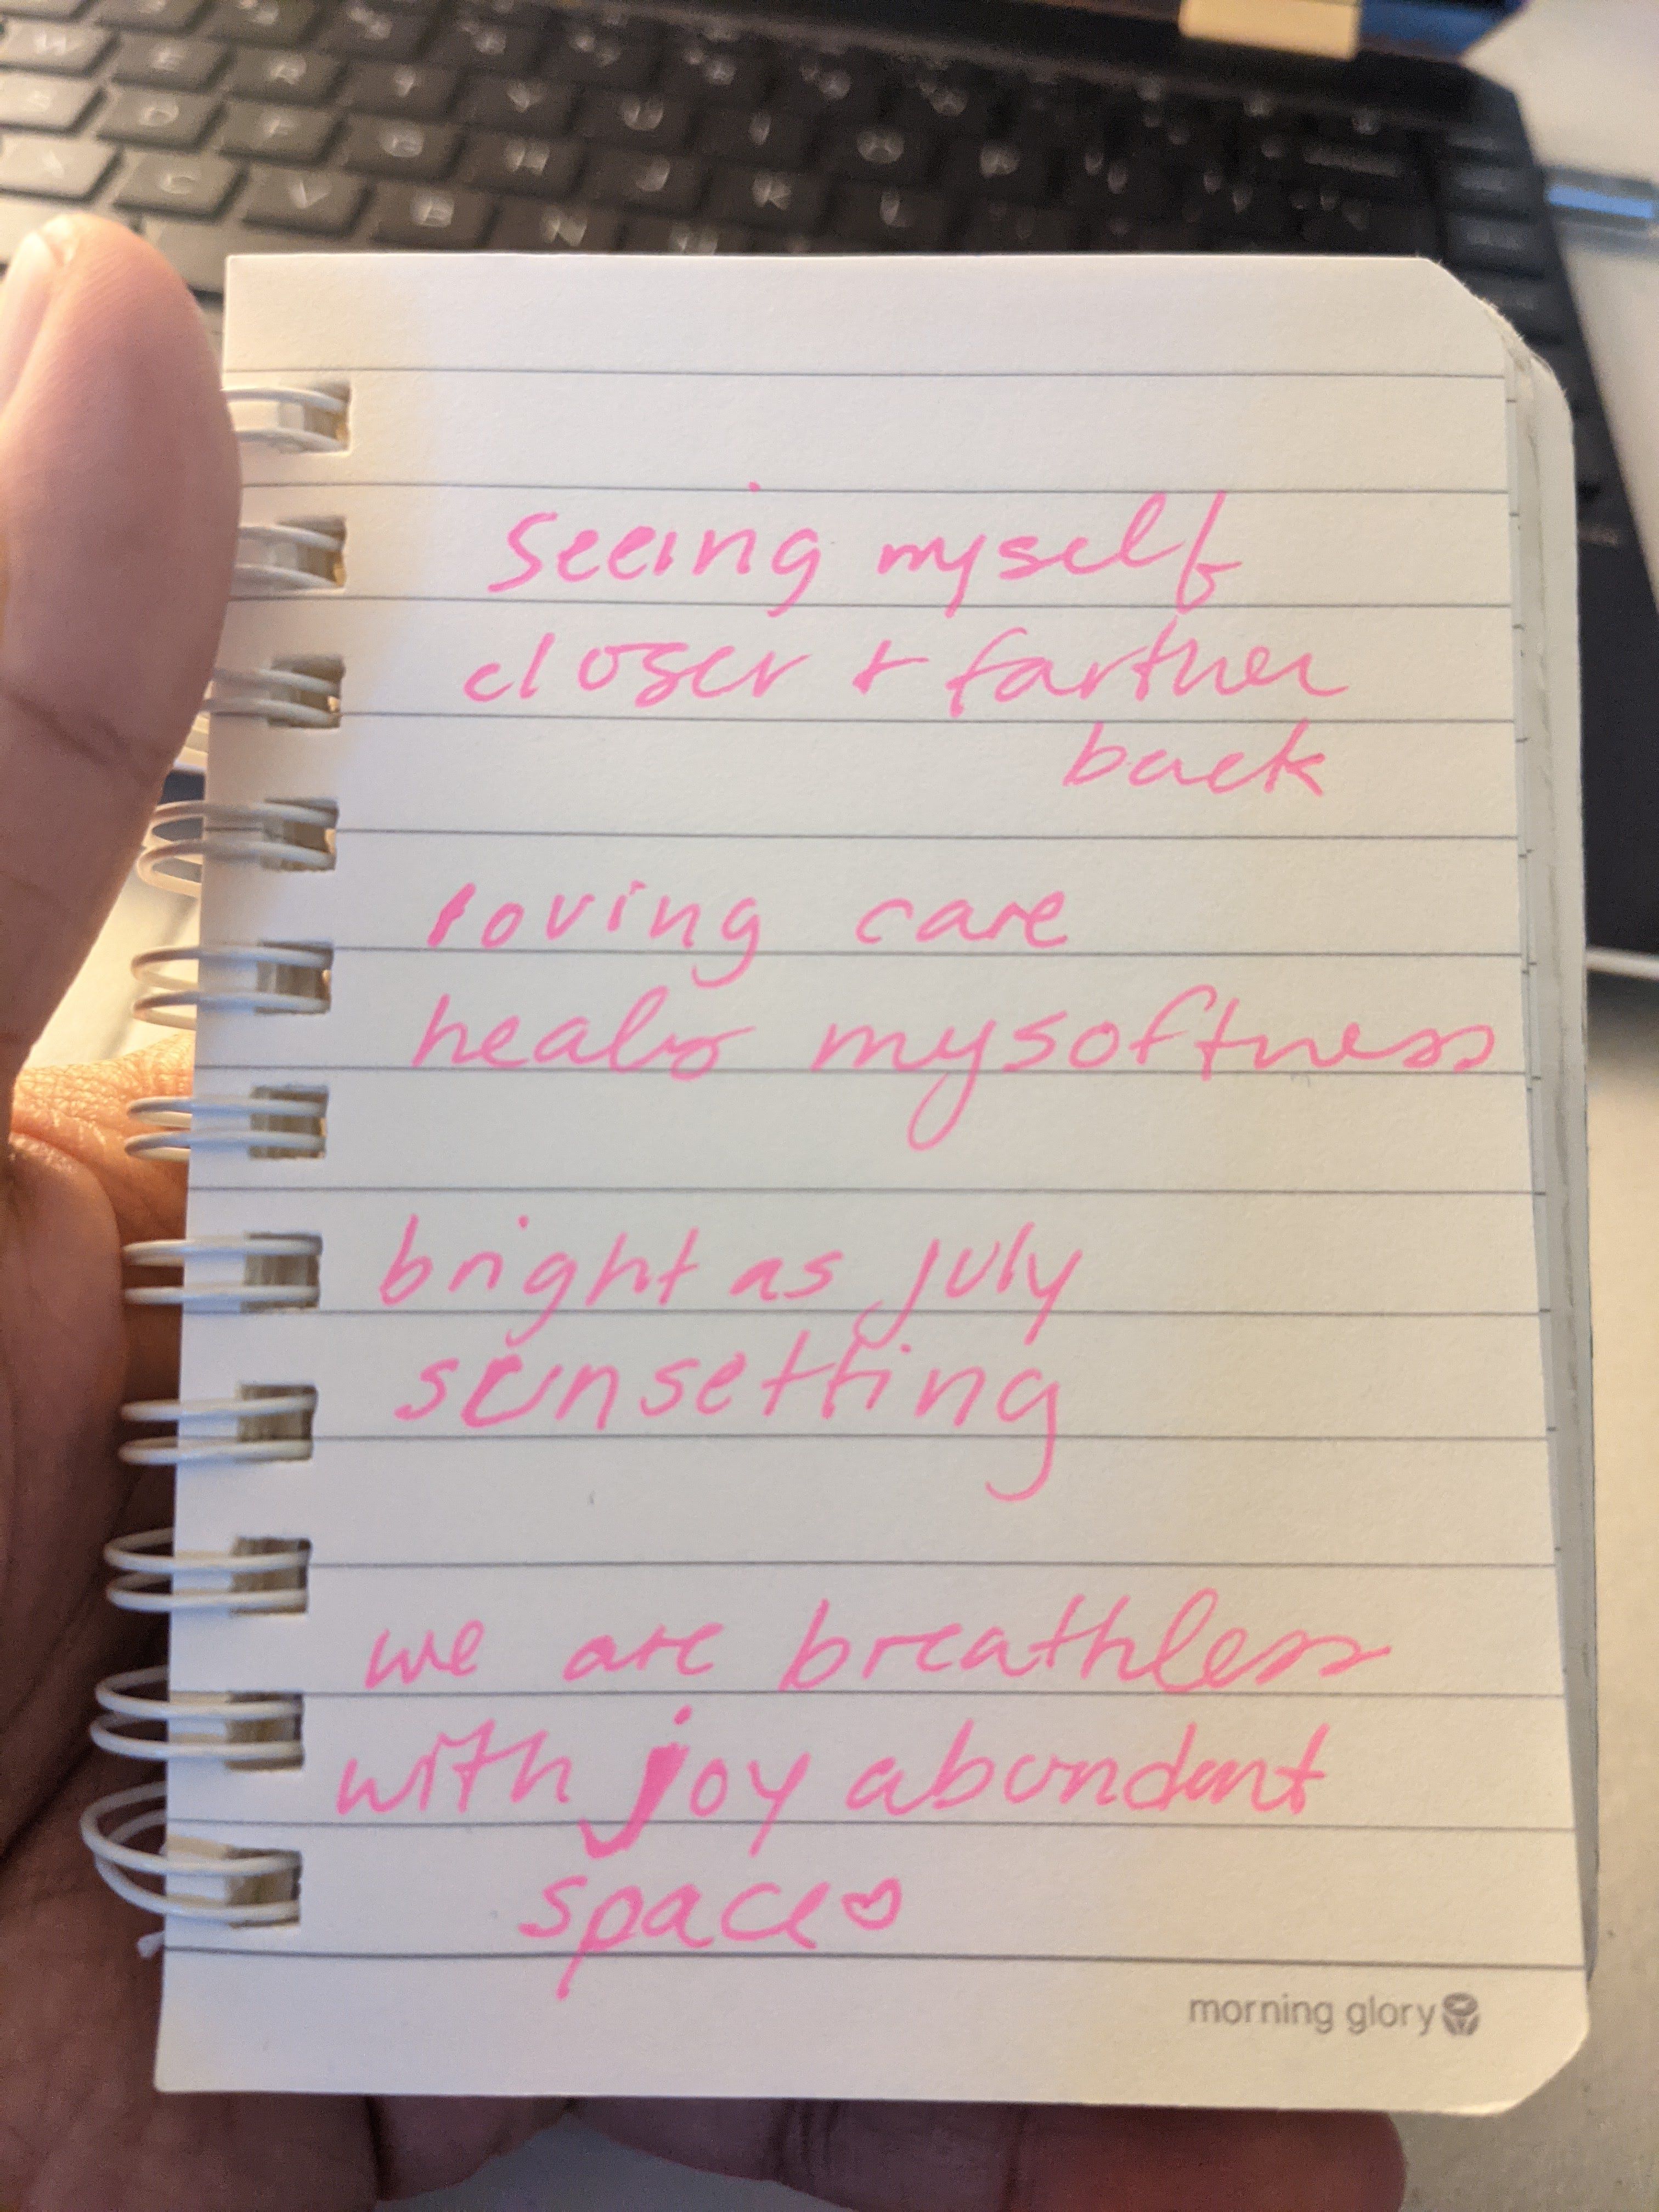 W E R T Y U I O P
S D F G H J K L
X C V B N M
seeing myself
closer + farther
back
loving care
heals my softness
bright as july
sunsetting
we are breathless
with joy abundant
space♡
morning glory